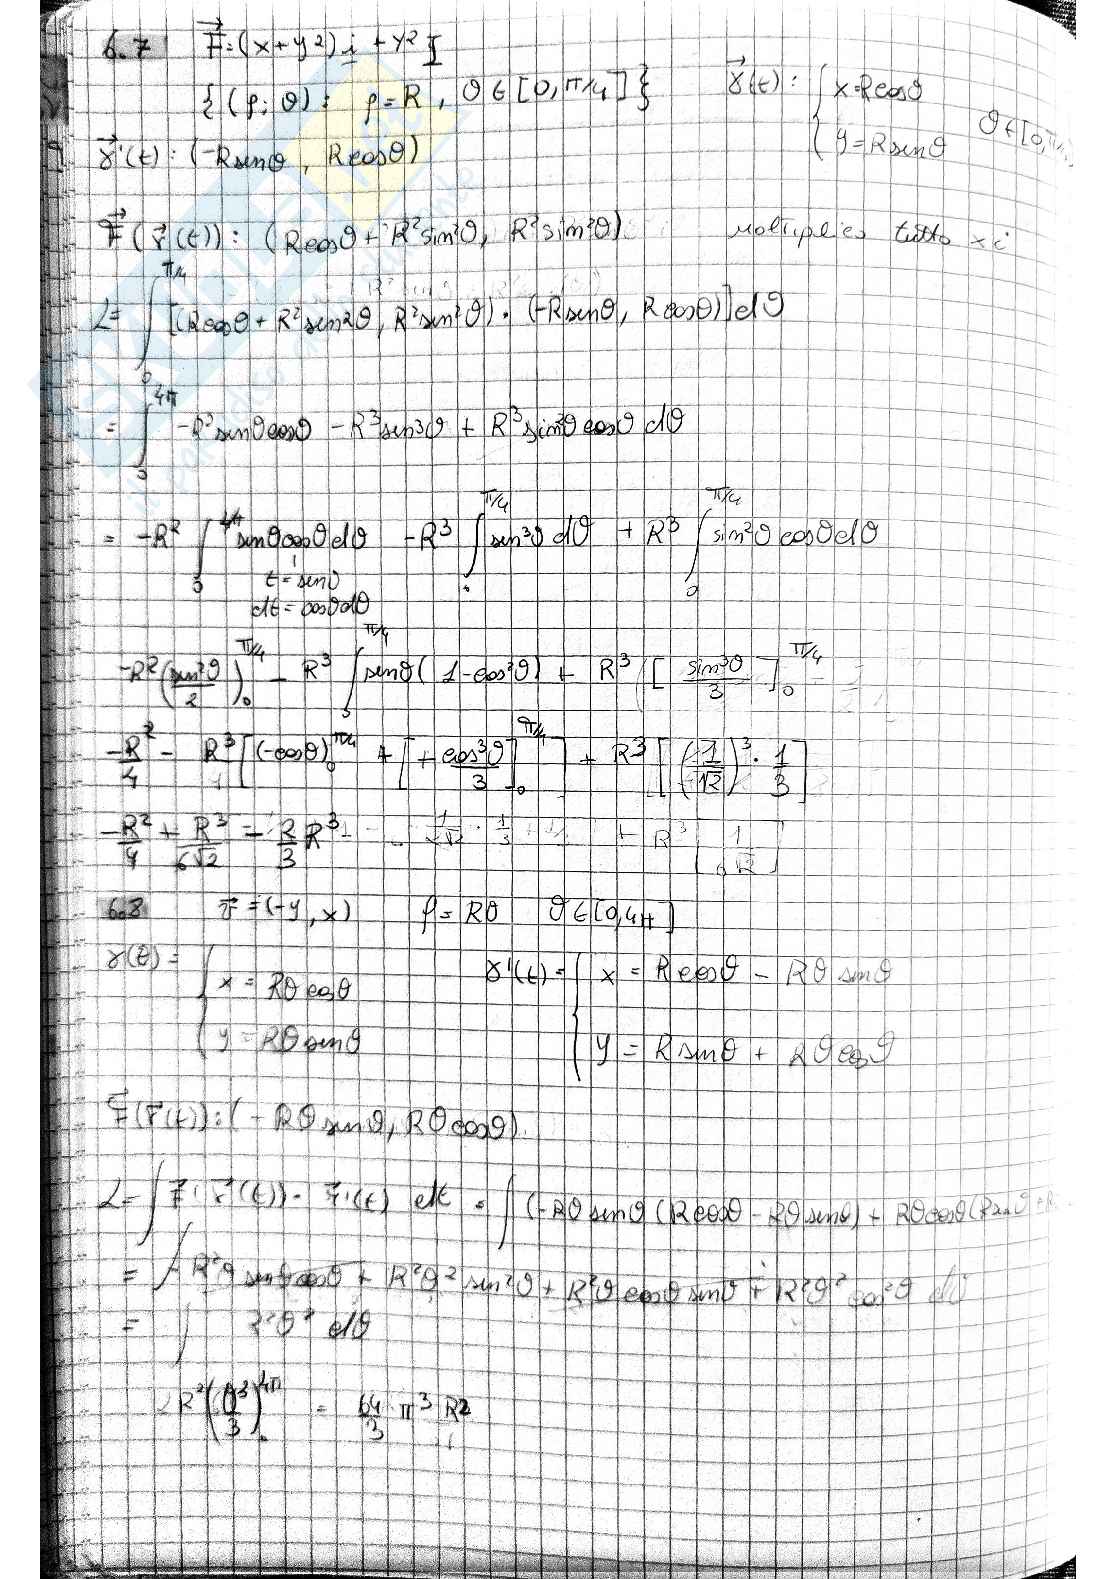 6.7 F⃗=(x+y²)i + y² j
{(ρ;θ): ρ=R, θ∈[0,π/4]} γ⃗(t): { x=Rcosθ
y=Rsinθ θ∈[0,π/4]
γ⃗'(t): (-Rsinθ, Rcosθ)
F⃗(r⃗(t)): (Rcosθ + R²sin²θ, R²sin²θ) moltiplico tutto x i
L= ∫₀^{π/4} [(Rcosθ + R²sin²θ, R²sin²θ)·(-Rsinθ, Rcosθ)]dθ
= ∫₀^{4π} -R²sinθcosθ - R³sin³θ + R³sin²θcosθ dθ
= -R² ∫₀^{4π} sinθcosθdθ - R³ ∫₀^{π/4} sin³θdθ + R³ ∫₀^{π/4} sin²θcosθdθ
t=sinθ
dt=cosθdθ
-R²(sin²θ/2)₀^{π/4} - R³ ∫₀^{π/4} sinθ(1-cos²θ) + R³ [sin³θ/3]₀^{π/4}
-R²/4 - R³[(-cosθ)₀^{π/4} + [+cos³θ/3]₀^{π/4}] + R³[(1/√2)³·1/3]
-R²/4 + R³/6√2 - 2/3 R³ - 1/√2 · 1/3 + R³ [1/6√2]
6.8 F⃗=(-y,x) ρ=Rθ θ∈[0,4π]
γ(t)= { x = Rθcosθ γ'(t)= { x = Rcosθ - Rθsinθ
y = Rθsinθ y = Rsinθ + Rθcosθ
F⃗(r⃗(t)): (-Rθsinθ, Rθcosθ)
L= ∫ F⃗(r⃗(t))· r⃗'(t) dt = ∫(-Rθsinθ(Rcosθ-Rθsinθ) + Rθcosθ(Rsinθ+R
= ∫ -R²θsinθcosθ + R²θ²sin²θ + R²θcosθsinθ + R²θ²cos²θ dθ
= ∫ R²θ² dθ
R²(θ³/3)₀^{4π} = 64/3 π³ R²